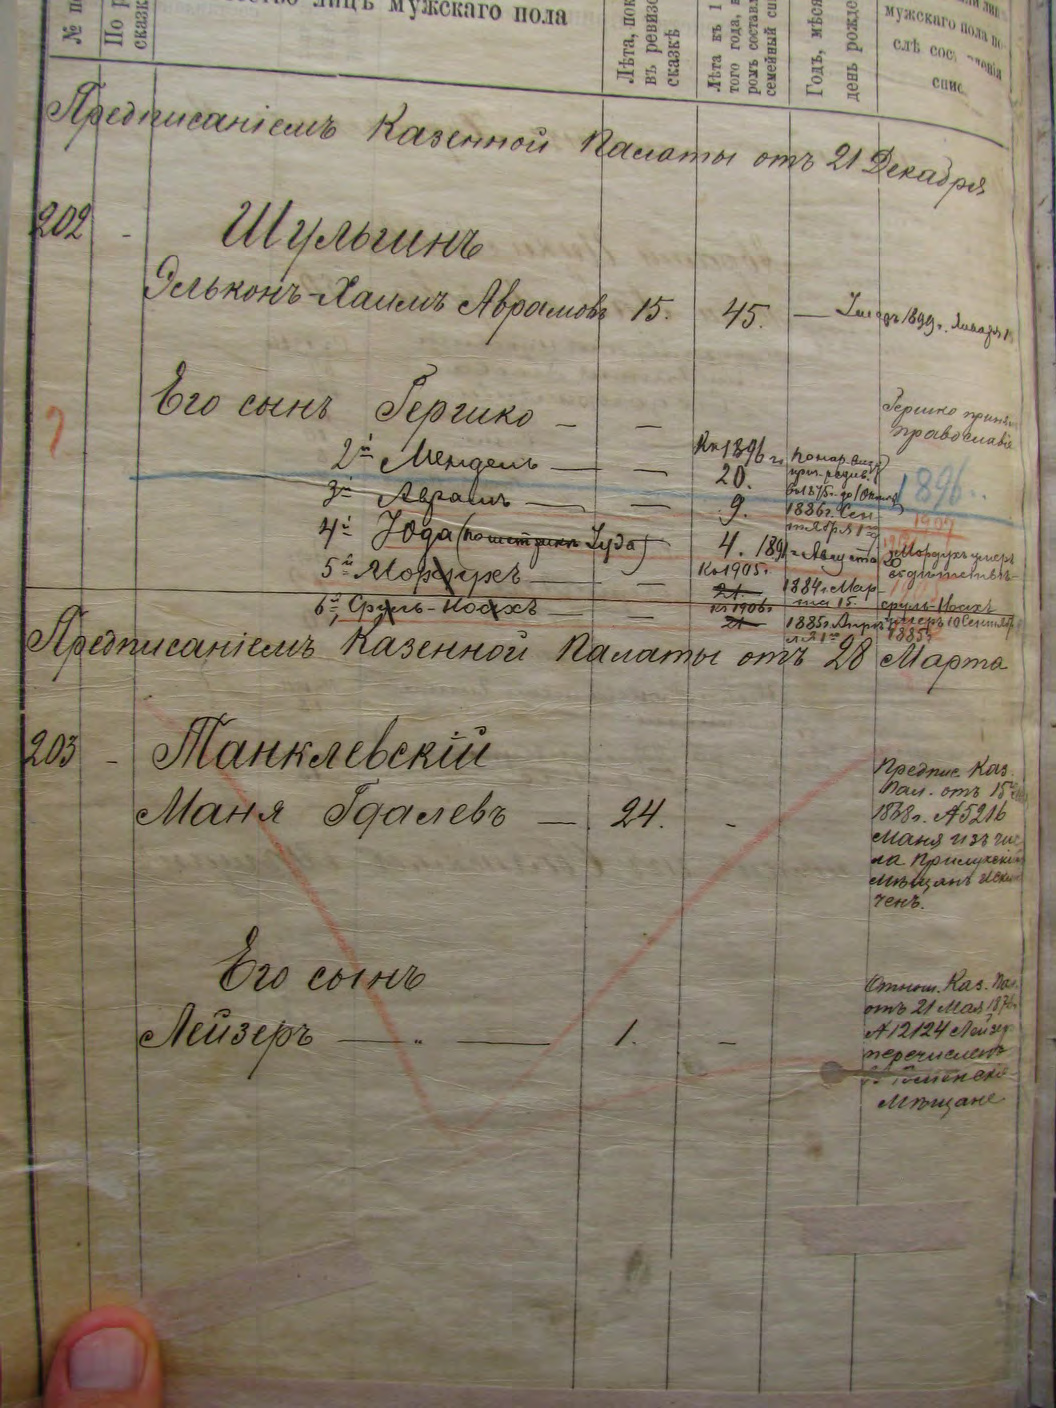 № по
По р
сказк
ство лицъ мужскаго пола
Лѣта, пок
въ ревизс
сказкѣ
Лѣта къ 1
того года, в
ромъ составл
семейный спи
Годъ, мѣся
день рожде
мужскаго пола по
слѣ сос вленія
спис
Предписаніемъ Казенной Палаты отъ 21 Декабря
202 - Шульгинъ
Эльконъ-Хаимъ Аврамовъ 15. 45. — 1899 г. Января
Его сынъ Гершко — —
Гершко приня
православіе
2й Мендель — — Къ 1896 г. 20.
1896..
3й Абрамъ — — 9. 1886 г. Сен-
тября 1го
1907
4й Юда (Іуда) 4. 189 г. Августа 20
5й Мордухъ — — Къ 1905 г. 21. 1884 г. Мар-
та 15.
Мордухъ умеръ
6й, Сруль-Ноахъ — — Къ 1906 г. 21 1885 г. Апрѣ-
ля 1го
Сруль-Ноахъ
умеръ 10 Сентяб
1885 г.
Предписаніемъ Казенной Палаты отъ 28 Марта
203 - Танклевскій
Маня Гдалевъ — 24. -
Предпис. Каз.
Пал. отъ 15
18 8 г. № 5216
Маня изъ чис
ла Прилукскій
Мѣщанъ исклю
ченъ.
Его сынъ
Лейзеръ — „ — 1. —
Отнош. Каз. Пал.
отъ 21 Мая 187
№ 12124 Лейзер
перечисленъ
въ Роменскіе
Мѣщане